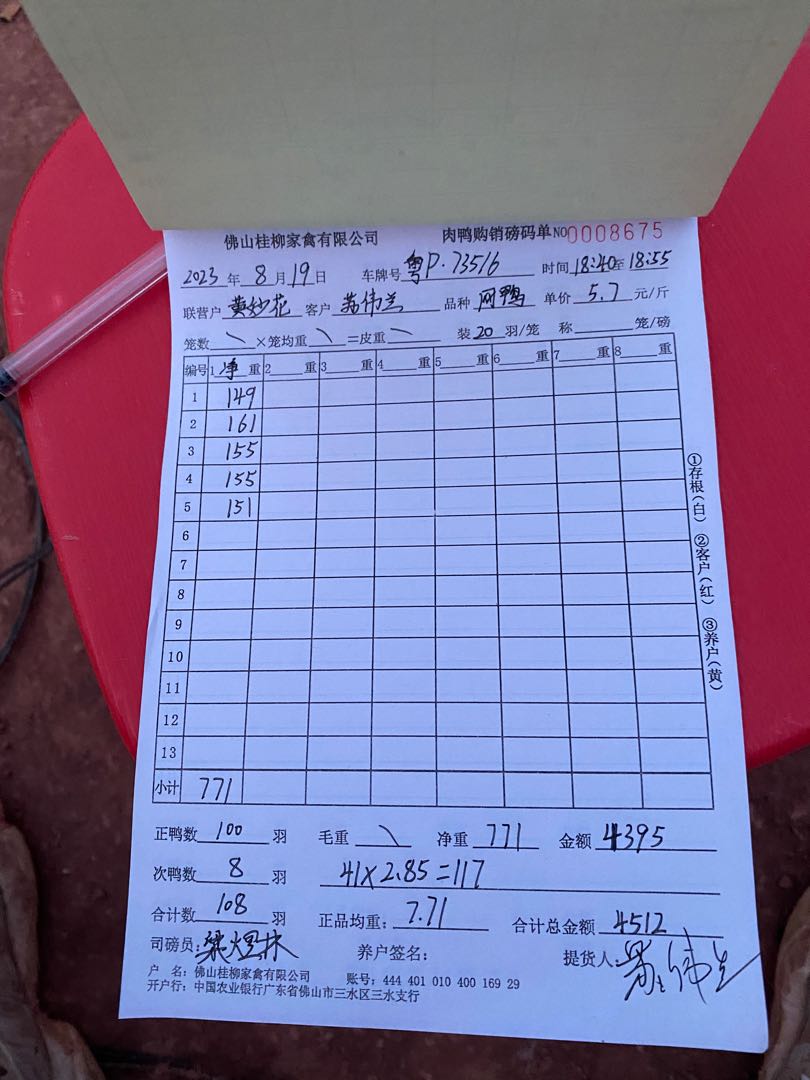 佛山桂柳家禽有限公司 肉鸭购销磅码单 NO 0008675
2023 年 8 月 19 日 车牌号 粤P·73516 时间 18:40 至 18:55
联营户 黄妙花 客户 苏伟兰 品种 网鸭 单价 5.7 元/斤
笼数 \ ×笼均重 \ =皮重 \ 装 20 羽/笼 称 笼/磅
编号 1 净 重 2 重 3 重 4 重 5 重 6 重 7 重 8 重
1 149
2 161
3 155
4 155
5 151
6
7
8
9
10
11
12
13
小计 771
①存根(白) ②客户(红) ③养户(黄)
正鸭数 100 羽 毛重 \ 净重 771 金额 4395
次鸭数 8 羽 41×2.85=117
合计数 108 羽 正品均重: 7.71 合计总金额 4512
司磅员: 养户签名: 提货人:
户 名: 佛山桂柳家禽有限公司 账号: 444 401 010 400 169 29
开户行: 中国农业银行广东省佛山市三水区三水支行